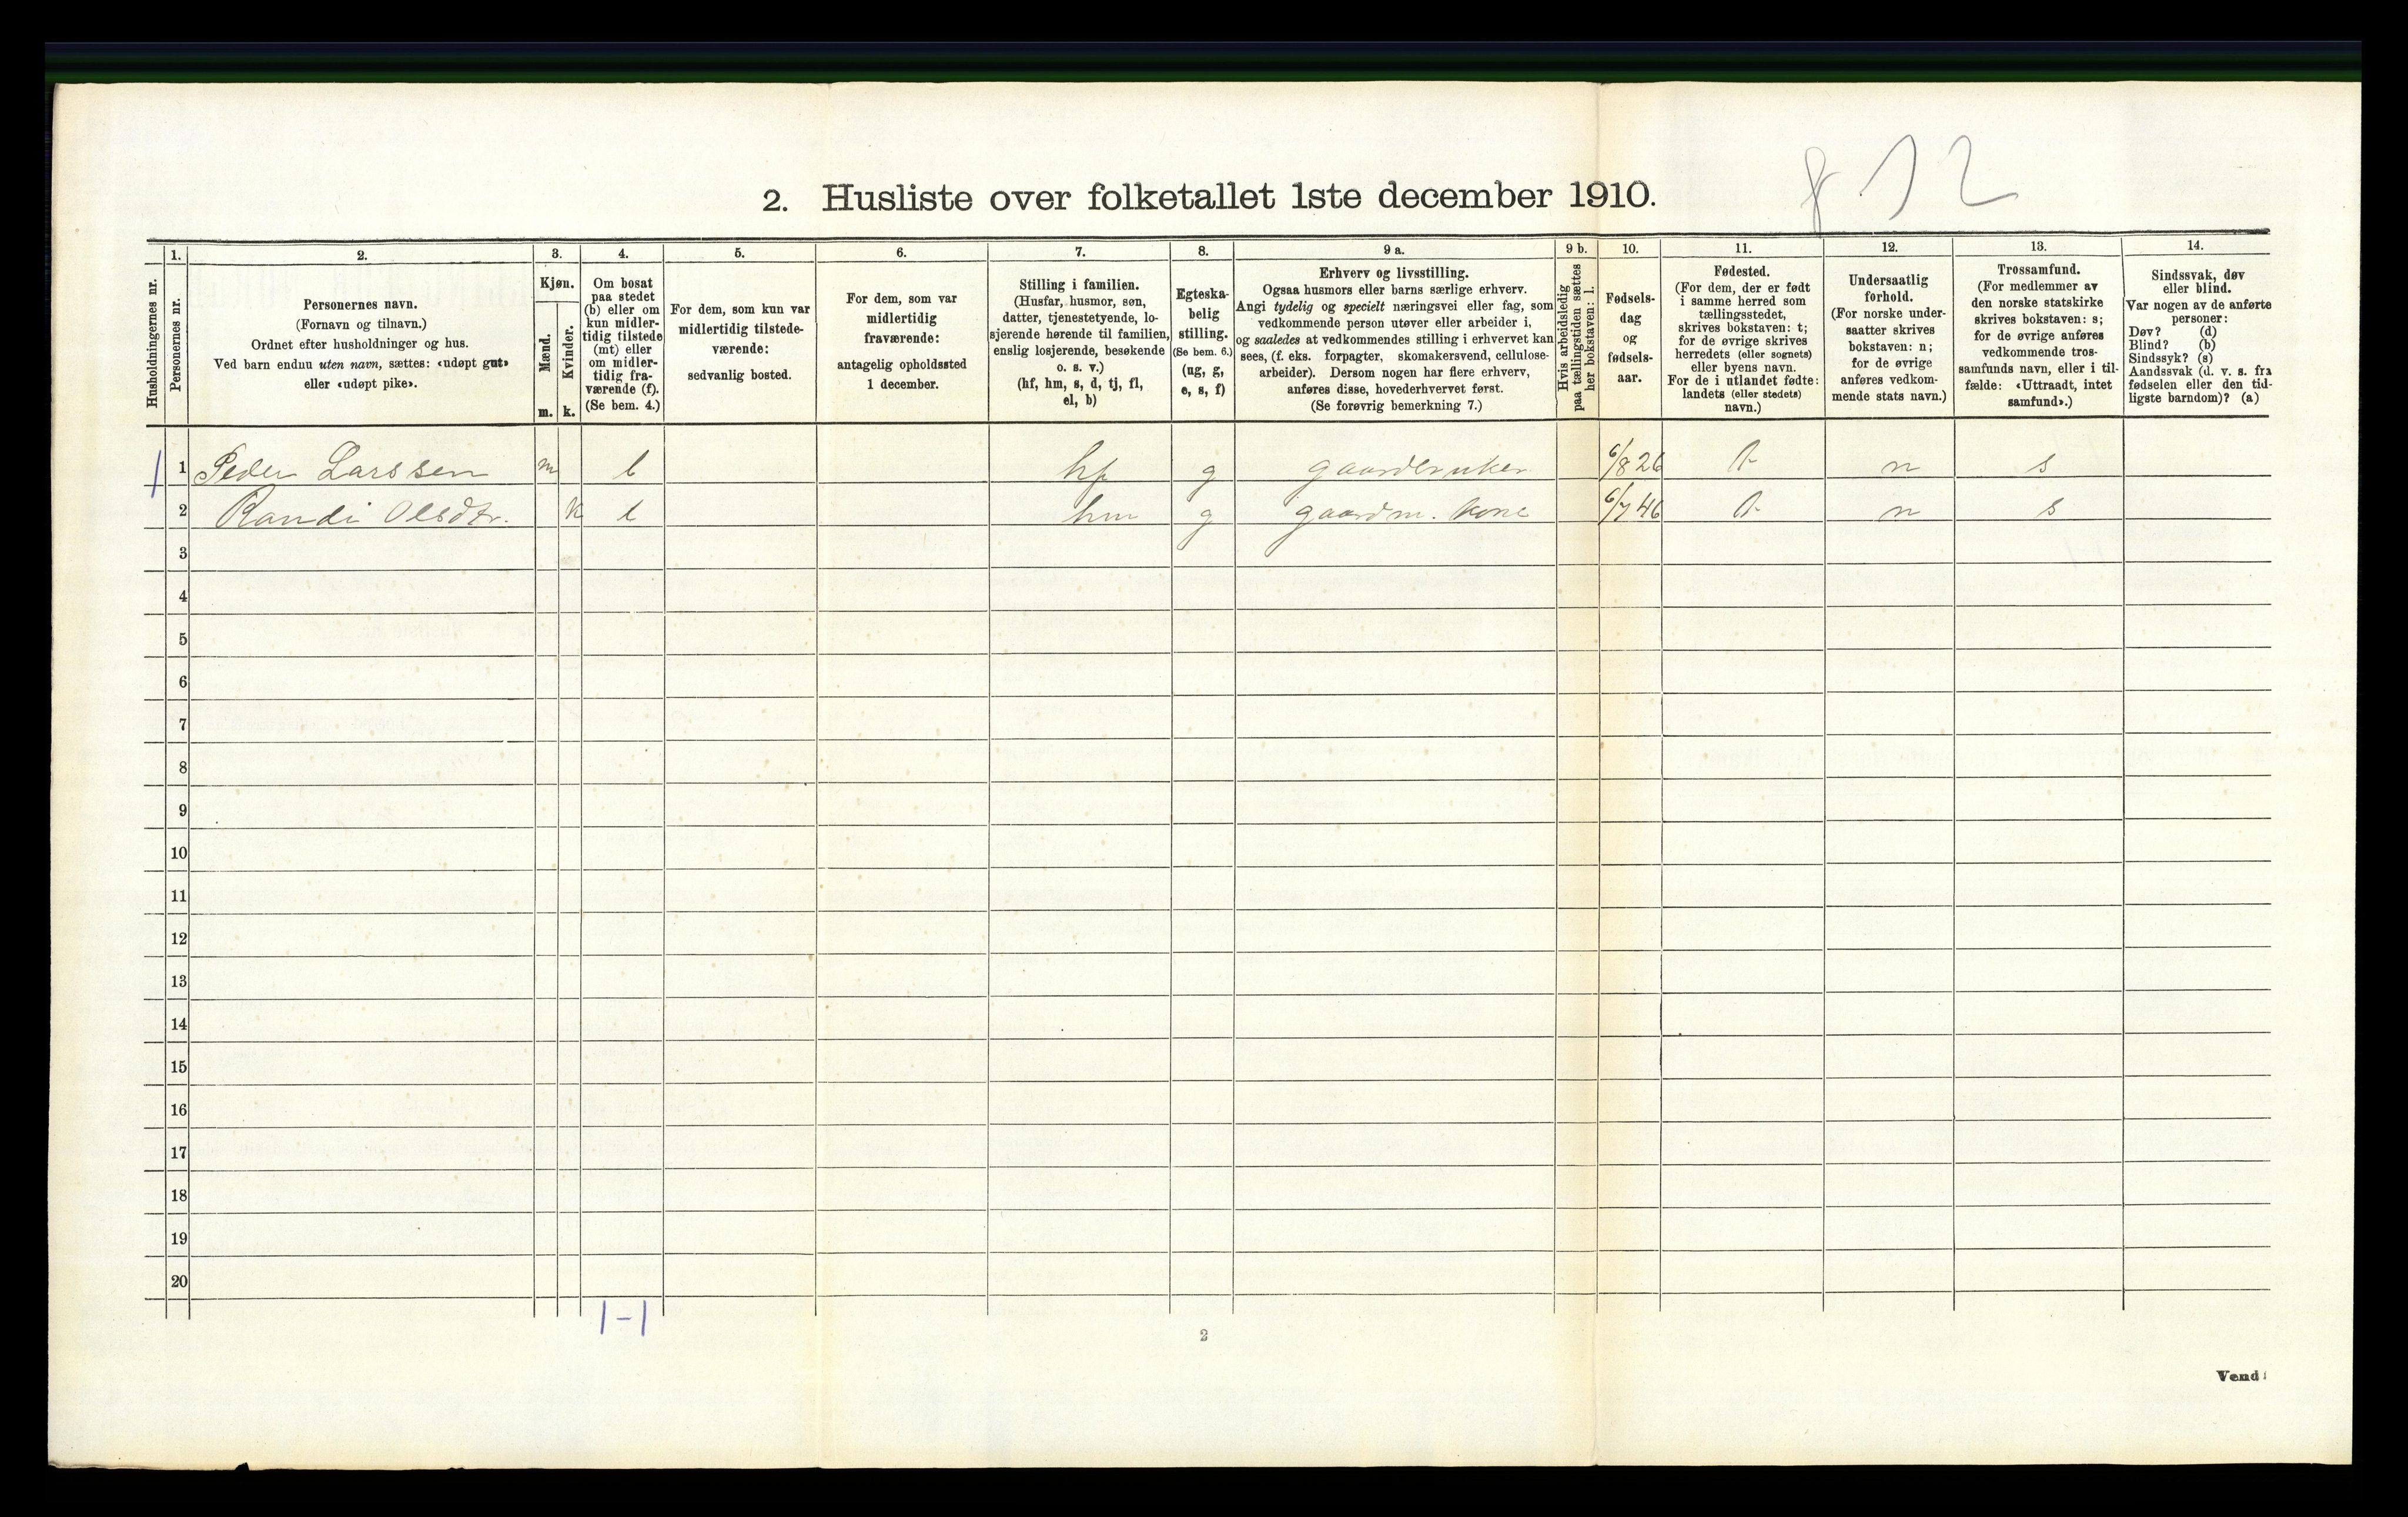 812
2. Husliste over folketallet 1ste december 1910.
Husholdningernes nr.
1.
Personernes nr.
2.
Personernes navn.
(Fornavn og tilnavn.)
Ordnet efter husholdninger og hus.
Ved barn endnu uten navn, sættes: «udøpt gut»
eller «udøpt pike».
3.
Kjøn.
Mænd.
m.
Kvinder.
k.
4.
Om bosat
paa stedet
(b) eller om
kun midler-
tidig tilstede
(mt) eller
om midler-
tidig fra-
værende (f).
(Se bem. 4.)
5.
For dem, som kun var
midlertidig tilstede-
værende:
sedvanlig bosted.
6.
For dem, som var
midlertidig
fraværende:
antagelig opholdssted
1 december.
7.
Stilling i familien.
(Husfar, husmor, søn,
datter, tjenestetyende, lo-
sjerende hørende til familien,
enslig losjerende, besøkende
o. s. v.)
(hf, hm, s, d, tj, fl,
el, b)
8.
Egteska-
belig
stilling.
(Se bem. 6.)
(ug, g,
e, s, f)
9 a.
Erhverv og livsstilling.
Ogsaa husmors eller barns særlige erhverv.
Angi tydelig og specielt næringsvei eller fag, som
vedkommende person utøver eller arbeider i,
og saaledes at vedkommendes stilling i erhvervet kan
sees, (f. eks. forpagter, skomakersvend, cellulose-
arbeider). Dersom nogen har flere erhverv,
anføres disse, hovederhvervet først.
(Se forøvrig bemerkning 7.)
9 b.
Hvis arbeidsledig
paa tællingstiden sættes
her bokstaven: l.
10.
Fødsels-
dag
og
fødsels-
aar.
11.
Fødested.
(For dem, der er født
i samme herred som
tællingsstedet,
skrives bokstaven: t;
for de øvrige skrives
herredets (eller sognets)
eller byens navn.
For de i utlandet fødte:
landets (eller stedets)
navn.)
12.
Undersaatlig
forhold.
(For norske under-
saatter skrives
bokstaven: n;
for de øvrige
anføres vedkom-
mende stats navn.)
13.
Trossamfund.
(For medlemmer av
den norske statskirke
skrives bokstaven: s;
for de øvrige anføres
vedkommende tros-
samfunds navn, eller i til-
fælde: «Uttraadt, intet
samfund».)
14.
Sindssvak, døv
eller blind.
Var nogen av de anførte
personer:
Døv? (d)
Blind? (b)
Sindssyk? (s)
Aandssvak (d. v. s. fra
fødselen eller den tid-
ligste barndom)? (a)
1 1 Peder Larssen m b hf g gaardbruker 6/8 26 t n s
2 Randi Olsdtr. k b hm g gaardm. kone 6/7 46 t n s
3
4
5
6
7
8
9
10
11
12
13
14
15
16
17
18
19
20
1-1
2
Vend!